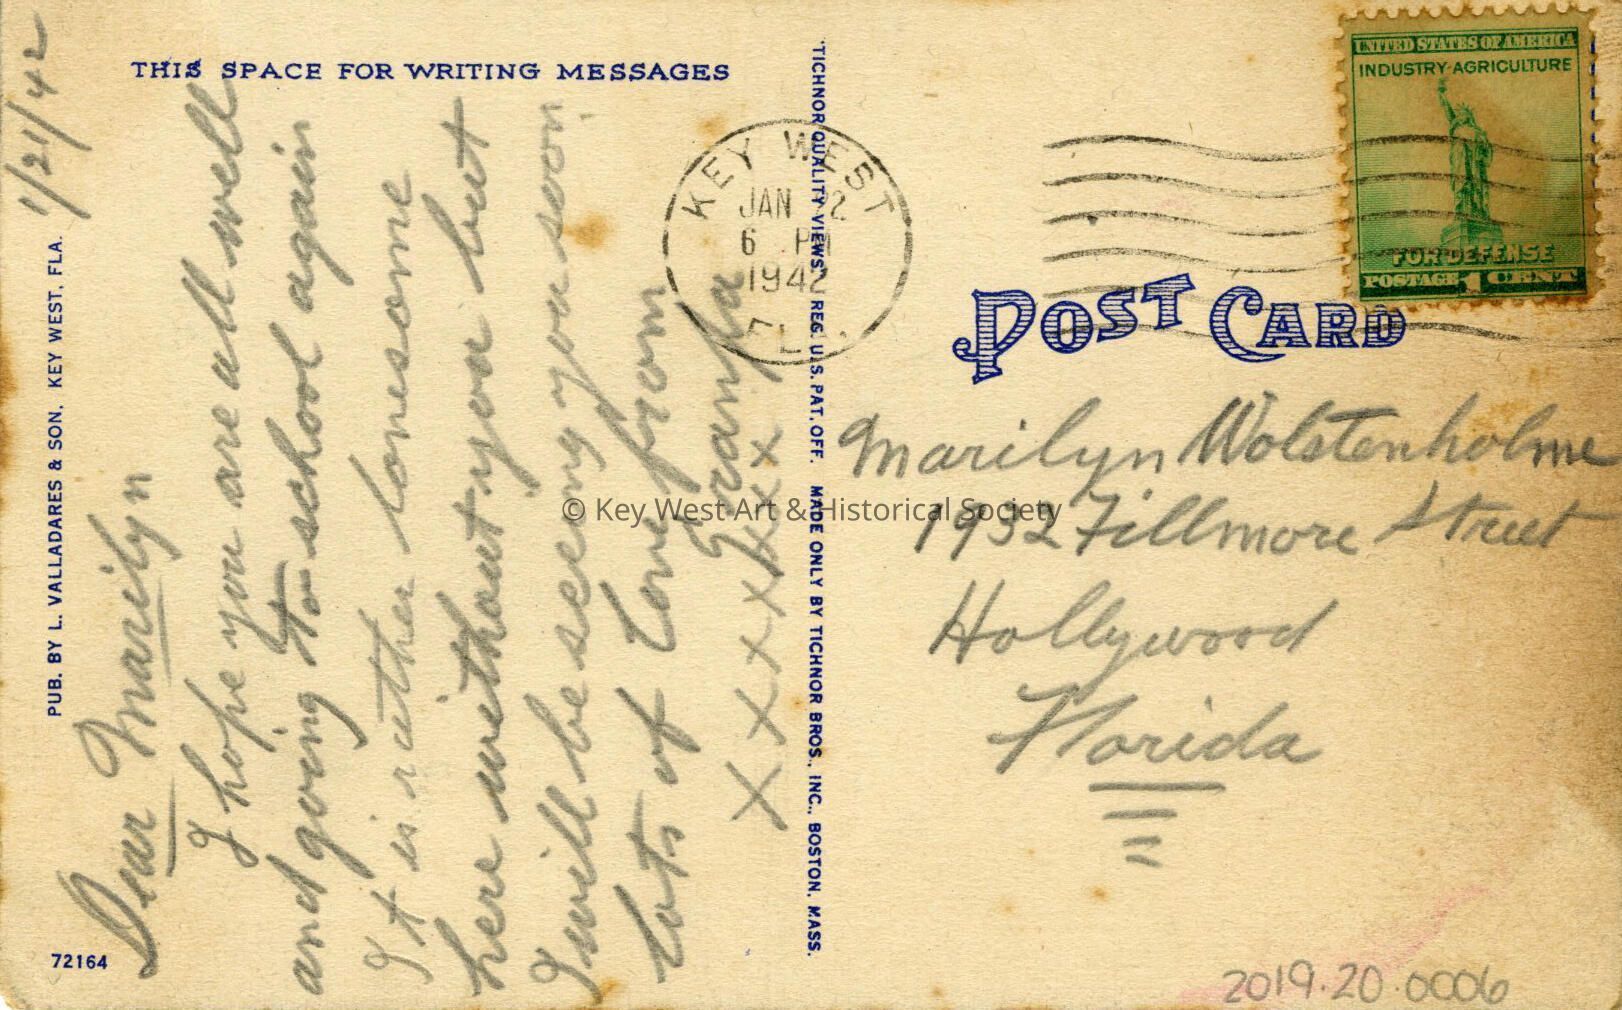 1/21/42
THIS SPACE FOR WRITING MESSAGES
Dear Marilyn
I hope you are all well
and going to school again
It is rather lonesome
here without you but
I will be seeing you soon.
Lots of Love from
Grampa
x x x x x x x x
PUB. BY L. VALLADARES & SON, KEY WEST, FLA.
72164
"TICHNOR QUALITY VIEWS," REG. U.S. PAT. OFF. MADE ONLY BY TICHNOR BROS., INC., BOSTON, MASS.
KEY WEST
JAN 22
6 PM
1942
FLA.
UNITED STATES OF AMERICA
INDUSTRY-AGRICULTURE
FOR DEFENSE
POSTAGE 1 CENT
POST CARD
Marilyn Wolstenholme
1932 Fillmore Street
Hollywood
Florida
© Key West Art & Historical Society
2019.20.0006